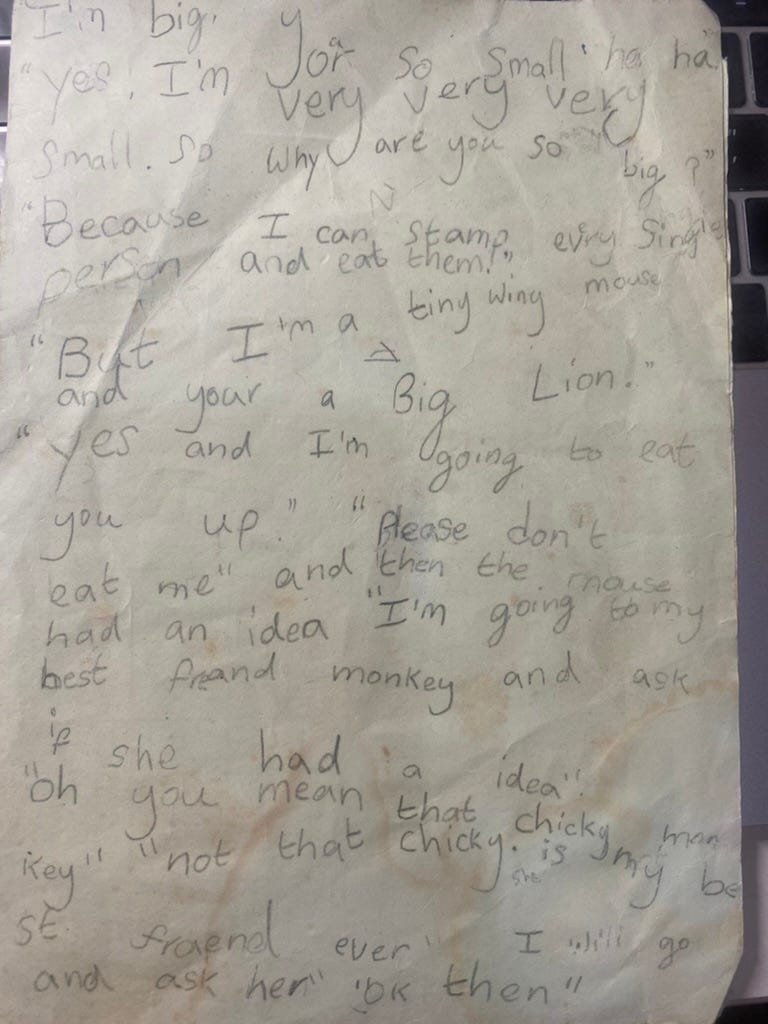 I'm big, yor so small ha ha."
"Yes, I'm a very very very
small. so why are you so big?"
"Because I can stamp evry single
person and eat them!"
"But I'm a tiny winy mouse
and your a Big Lion."
"yes and I'm going to eat
you up." "Please don't
eat me" and then the mouse
had an idea "I'm going to my
best freand monkey and ask
if she had a idea".
"Oh you mean that chicky mon
key" "not that chicky. she is my be
st fraend ever" I will go
and ask her" "OK then"